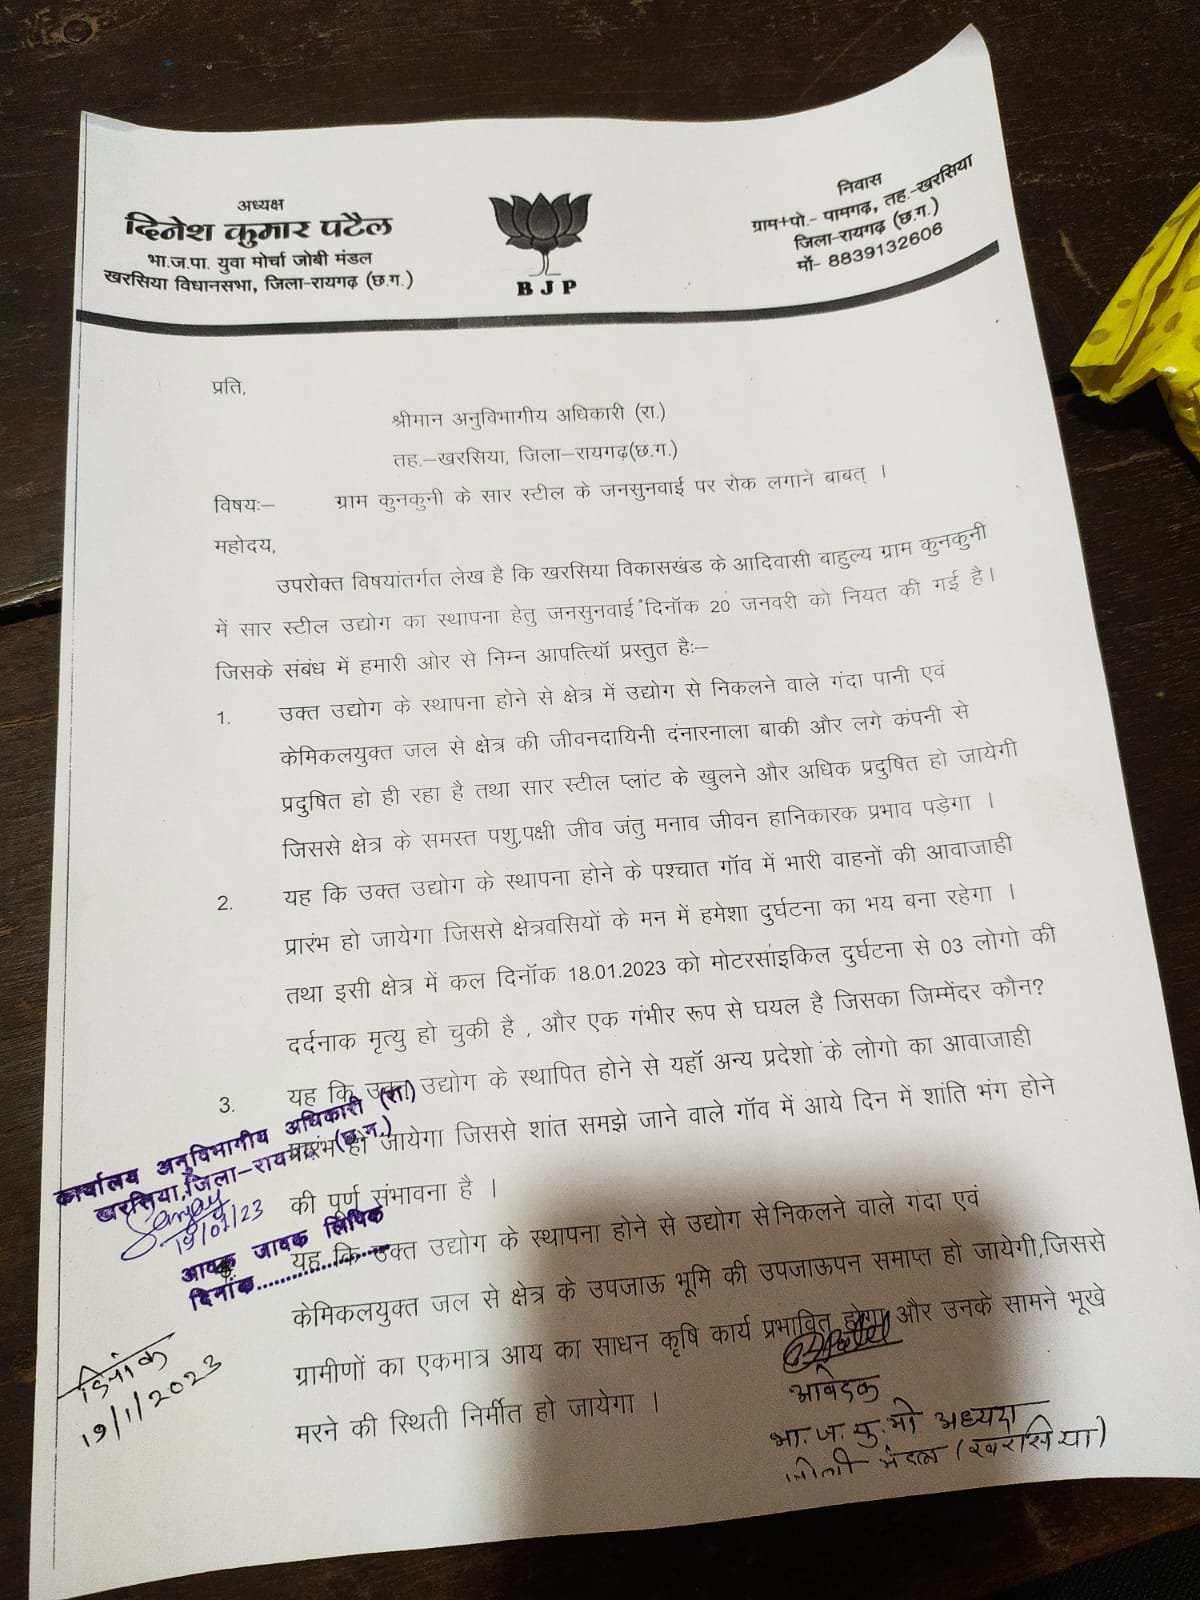 अध्यक्ष
दिनेश कुमार पटैल
भा.ज.पा. युवा मोर्चा जोबी मंडल
खरसिया विधानसभा, जिला-रायगढ़ (छ.ग.)
B J P
निवास
ग्राम+पो.- पामगढ़, तह.-खरसिया
जिला-रायगढ़ (छ.ग.)
मॉ- 8839132606
प्रति,
श्रीमान अनुविभागीय अधिकारी (रा.)
तह.–खरसिया, जिला–रायगढ़(छ.ग.)
विषयः– ग्राम कुनकुनी के सार स्टील के जनसुनवाई पर रोक लगाने बाबत् ।
महोदय,
उपरोक्त विषयांतर्गत लेख है कि खरसिया विकासखंड के आदिवासी बाहुल्य ग्राम कुनकुनी
में सार स्टील उद्योग का स्थापना हेतु जनसुनवाई दिनॉक 20 जनवरी को नियत की गई है।
जिसके संबंध में हमारी ओर से निम्न आपत्त्यिॉ प्रस्तुत हैः–
1. उक्त उद्योग के स्थापना होने से क्षेत्र में उद्योग से निकलने वाले गंदा पानी एवं
केमिकलयुक्त जल से क्षेत्र की जीवनदायिनी दंनारनाला बाकी और लगे कंपनी से
प्रदुषित हो ही रहा है तथा सार स्टील प्लांट के खुलने और अधिक प्रदुषित हो जायेगी
जिससे क्षेत्र के समस्त पशु,पक्षी जीव जंतु मनाव जीवन हानिकारक प्रभाव पड़ेगा ।
2. यह कि उक्त उद्योग के स्थापना होने के पश्चात गॉव में भारी वाहनों की आवाजाही
प्रारंभ हो जायेगा जिससे क्षेत्रवसियों के मन में हमेशा दुर्घटना का भय बना रहेगा ।
तथा इसी क्षेत्र में कल दिनॉक 18.01.2023 को मोटरसांइकिल दुर्घटना से 03 लोगो की
दर्दनाक मृत्यु हो चुकी है , और एक गंभीर रूप से घयल है जिसका जिम्मेंदर कौन?
3. यह कि उक्त उद्योग के स्थापित होने से यहॉ अन्य प्रदेशो के लोगो का आवाजाही
प्रारंभ हो जायेगा जिससे शांत समझे जाने वाले गॉव में आये दिन में शांति भंग होने
की पूर्ण संभावना है ।
यह कि उक्त उद्योग के स्थापना होने से उद्योग से निकलने वाले गंदा एवं
केमिकलयुक्त जल से क्षेत्र के उपजाऊ भूमि की उपजाऊपन समाप्त हो जायेगी,जिससे
ग्रामीणों का एकमात्र आय का साधन कृषि कार्य प्रभावित होगा और उनके सामने भूखे
मरने की स्थिती निर्मीत हो जायेगा ।
कार्यालय अनुविभागीय अधिकारी (रा.)
खरसिया,जिला-रायगढ़ (छ.ग.)
Sanjay
19/01/23
आवक जावक लिपिक
दिनांक....................
दिनांक
19/1/2023
आवेदक
भा.ज.यु.मो अध्यक्ष
जोबी मंडल (खरसिया)